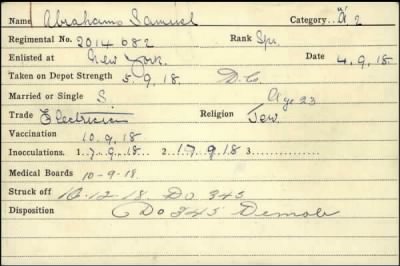 Name Abrahams Samuel Category A 2
Regimental No. 2014682 Rank Spr.
Enlisted at New York. Date 4.9.18.
Taken on Depot Strength 5.9.18. D.C.
Married or Single S. Age 23
Trade Electrician Religion Jew.
Vaccination 10.9.18.
Inoculations. 1. 7.9.18. 2. 17.9.18 3.
Medical Boards 10-9-18.
Struck off 16-12-18. DO 345
Disposition DO 345 Demob